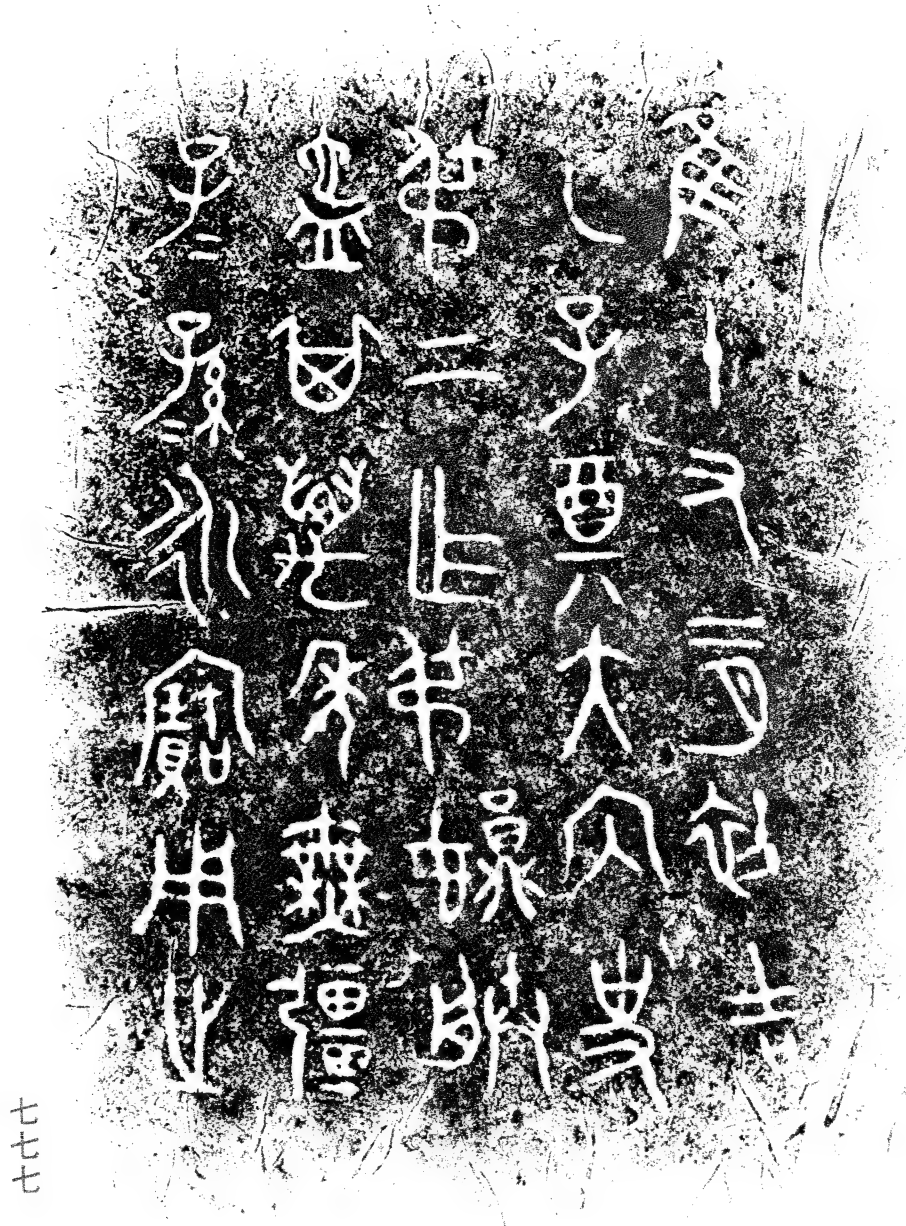 隹十又二月初吉
乙子奠大内史
弔上乍弔娟朕
匜其萬年無疆
子=孫=永寶用之
七七七